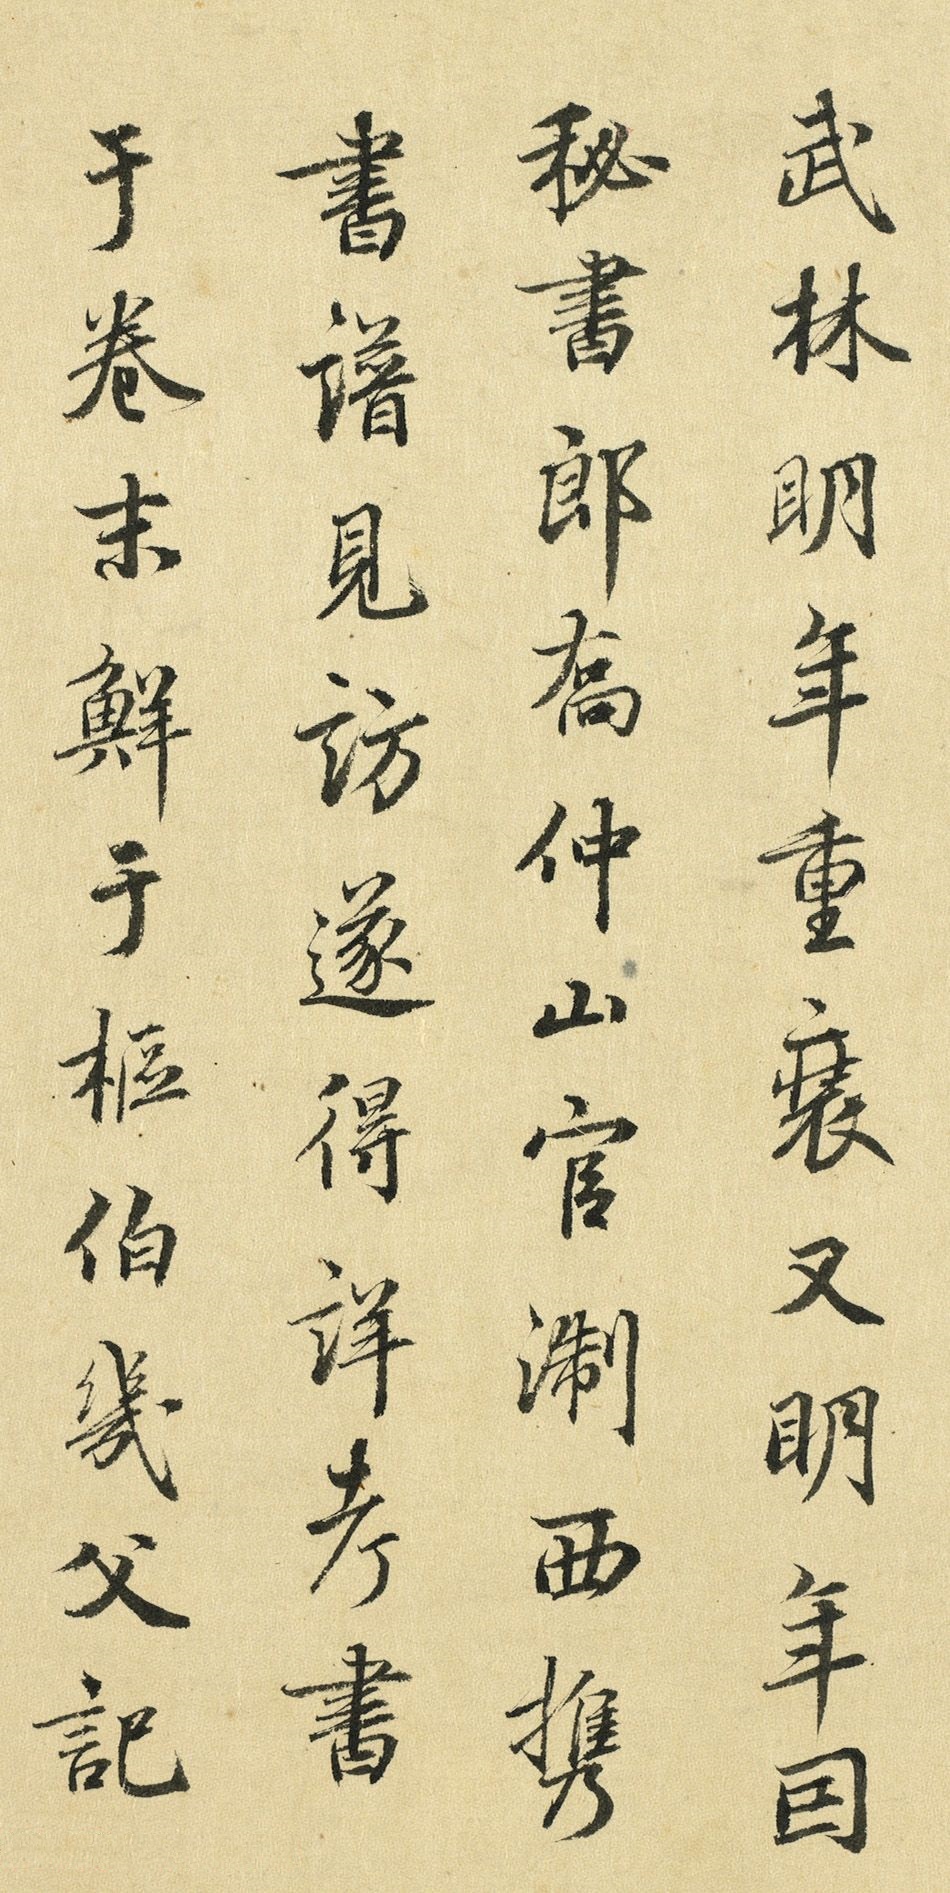 武林明年重裝又明年因
秘書郎喬仲山官淛西携
書譜見訪遂得詳考書
于卷末鮮于樞伯幾父記